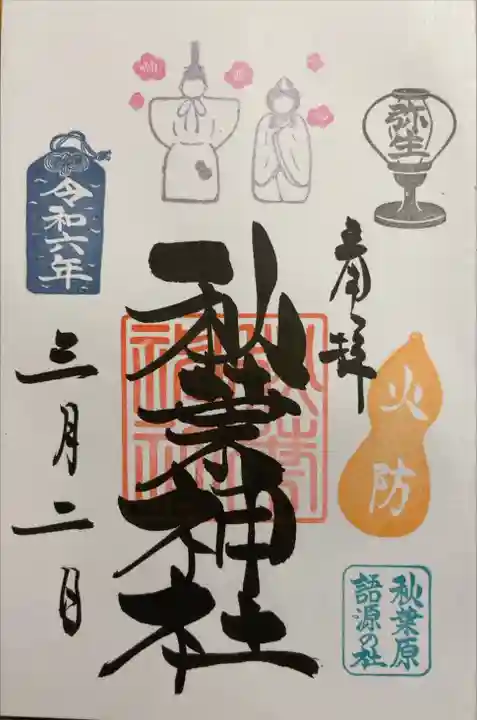 弥生
奉拝
火防
秋葉原
語源の社
秋葉神社
秋葉
神社
令和六年
三月二日